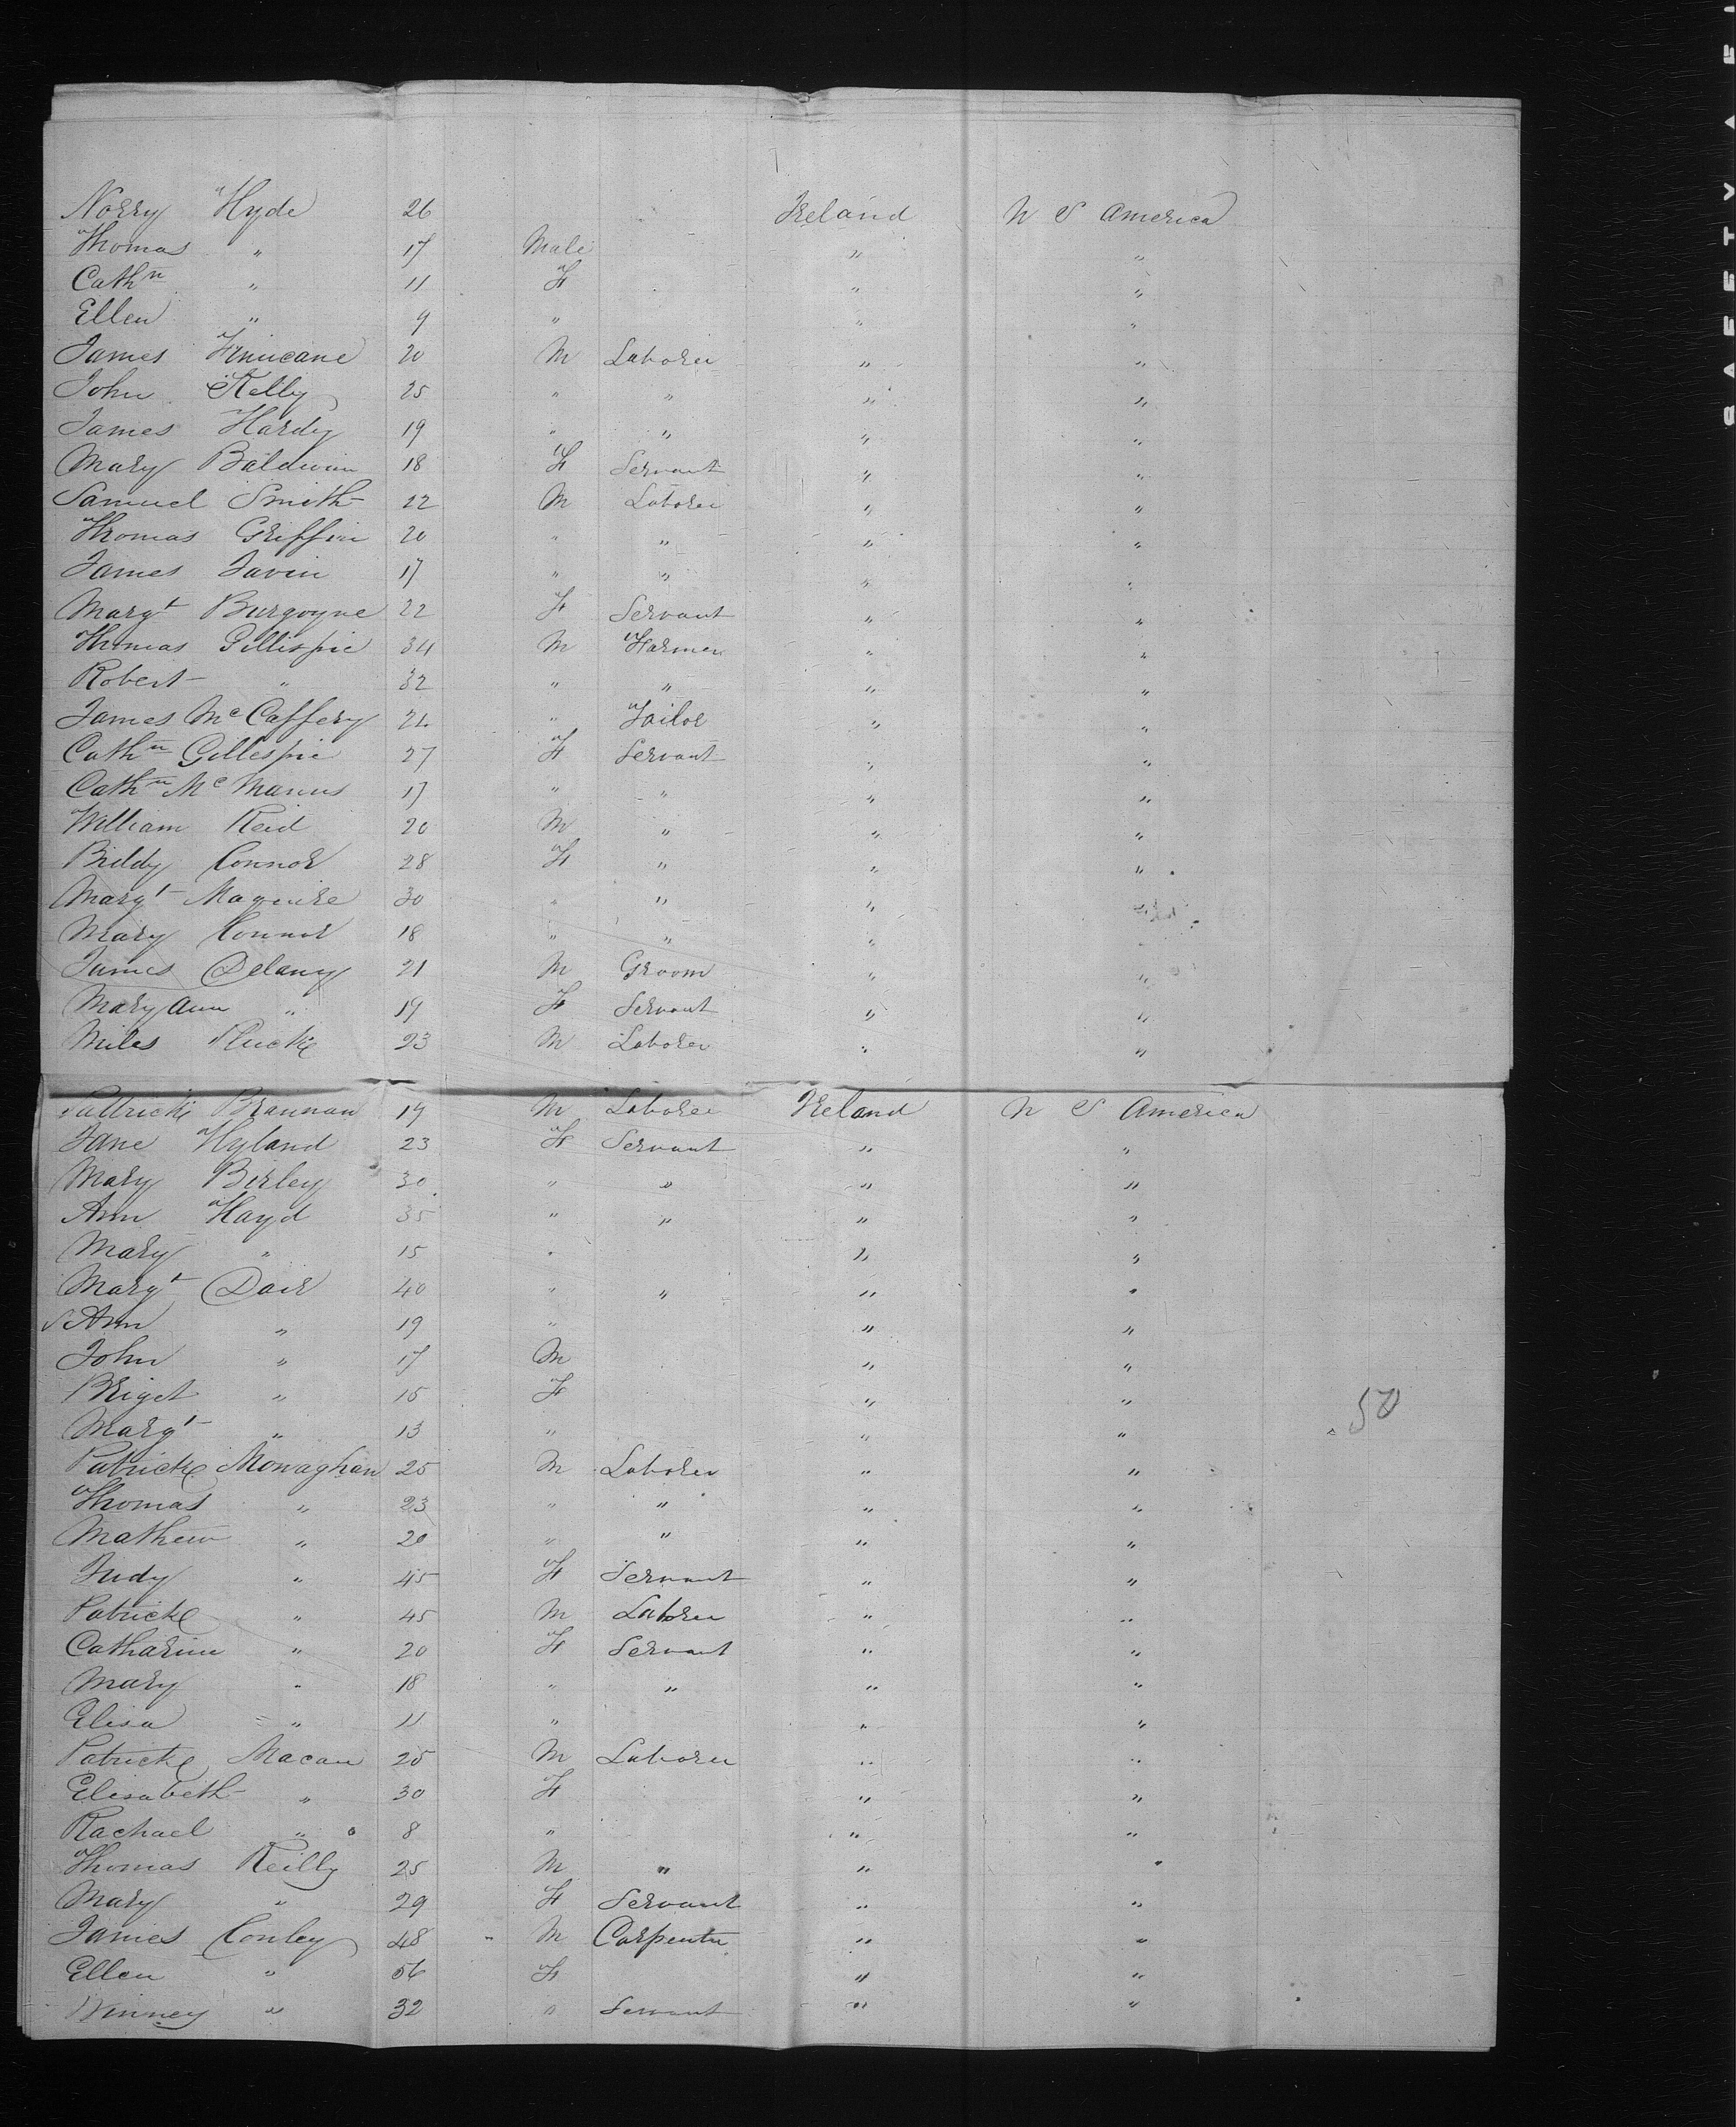 Norry Hyde 26 Ireland U S America
Thomas " 17 Male " "
Cathn " 11 F " "
Ellen " 9 " " "
James Finucane 20 M Laborer " "
John Kelly 25 " " " "
James Hardy 19 " " " "
Mary Baldwin 18 F Servant " "
Samuel Smith 22 M Laborer " "
Thomas Griffin 20 " " " "
James Javin 17 " " " "
Margt Burgoyne 22 F Servant " "
Thomas Gillispie 34 M Farmer " "
Robert " 32 " " " "
James McCaffery 21 " Tailor " "
Cathn Gillespie 27 F Servant " "
Cathn McManus 17 " " " "
William Reid 20 M " " "
Biddy Connor 28 F " " "
Margt Maguire 30 " " " "
Mary Connor 18 " " " "
James Delany 21 M Groom " "
Mary Ann " 19 F Servant " "
Miles 23 M Laborer " "
Pattrick Brannan 19 M Laborer Ireland U S America
Jane Hyland 23 F Servant " "
Mary Birley 30 " " " "
Ann Hayd 35 " " " "
Mary " 15 " " "
Margt Dair 40 " " " "
Ann " 19 " " "
John " 17 M " "
Briget " 15 F " "
50
Margt " 13 " " "
Patrick Monaghan 25 M Laborer " "
Thomas " 23 " " " "
Mathew " 20 " " " "
Judy " 45 F Servant " "
Patrick " 45 M Laborer " "
Catharine " 20 F Servant " "
Mary " 18 " " " "
Elisa " 11 " " "
Patrick Macan 25 M Laborer " "
Elisabeth " 30 F " "
Rachael " 8 " " "
Thomas Reilly 25 M " " "
Mary " 29 F Servant " "
James Conley 48 M Carpenter " "
Ellen " 56 F " "
Winney " 32 " Servant " "
SAFETY